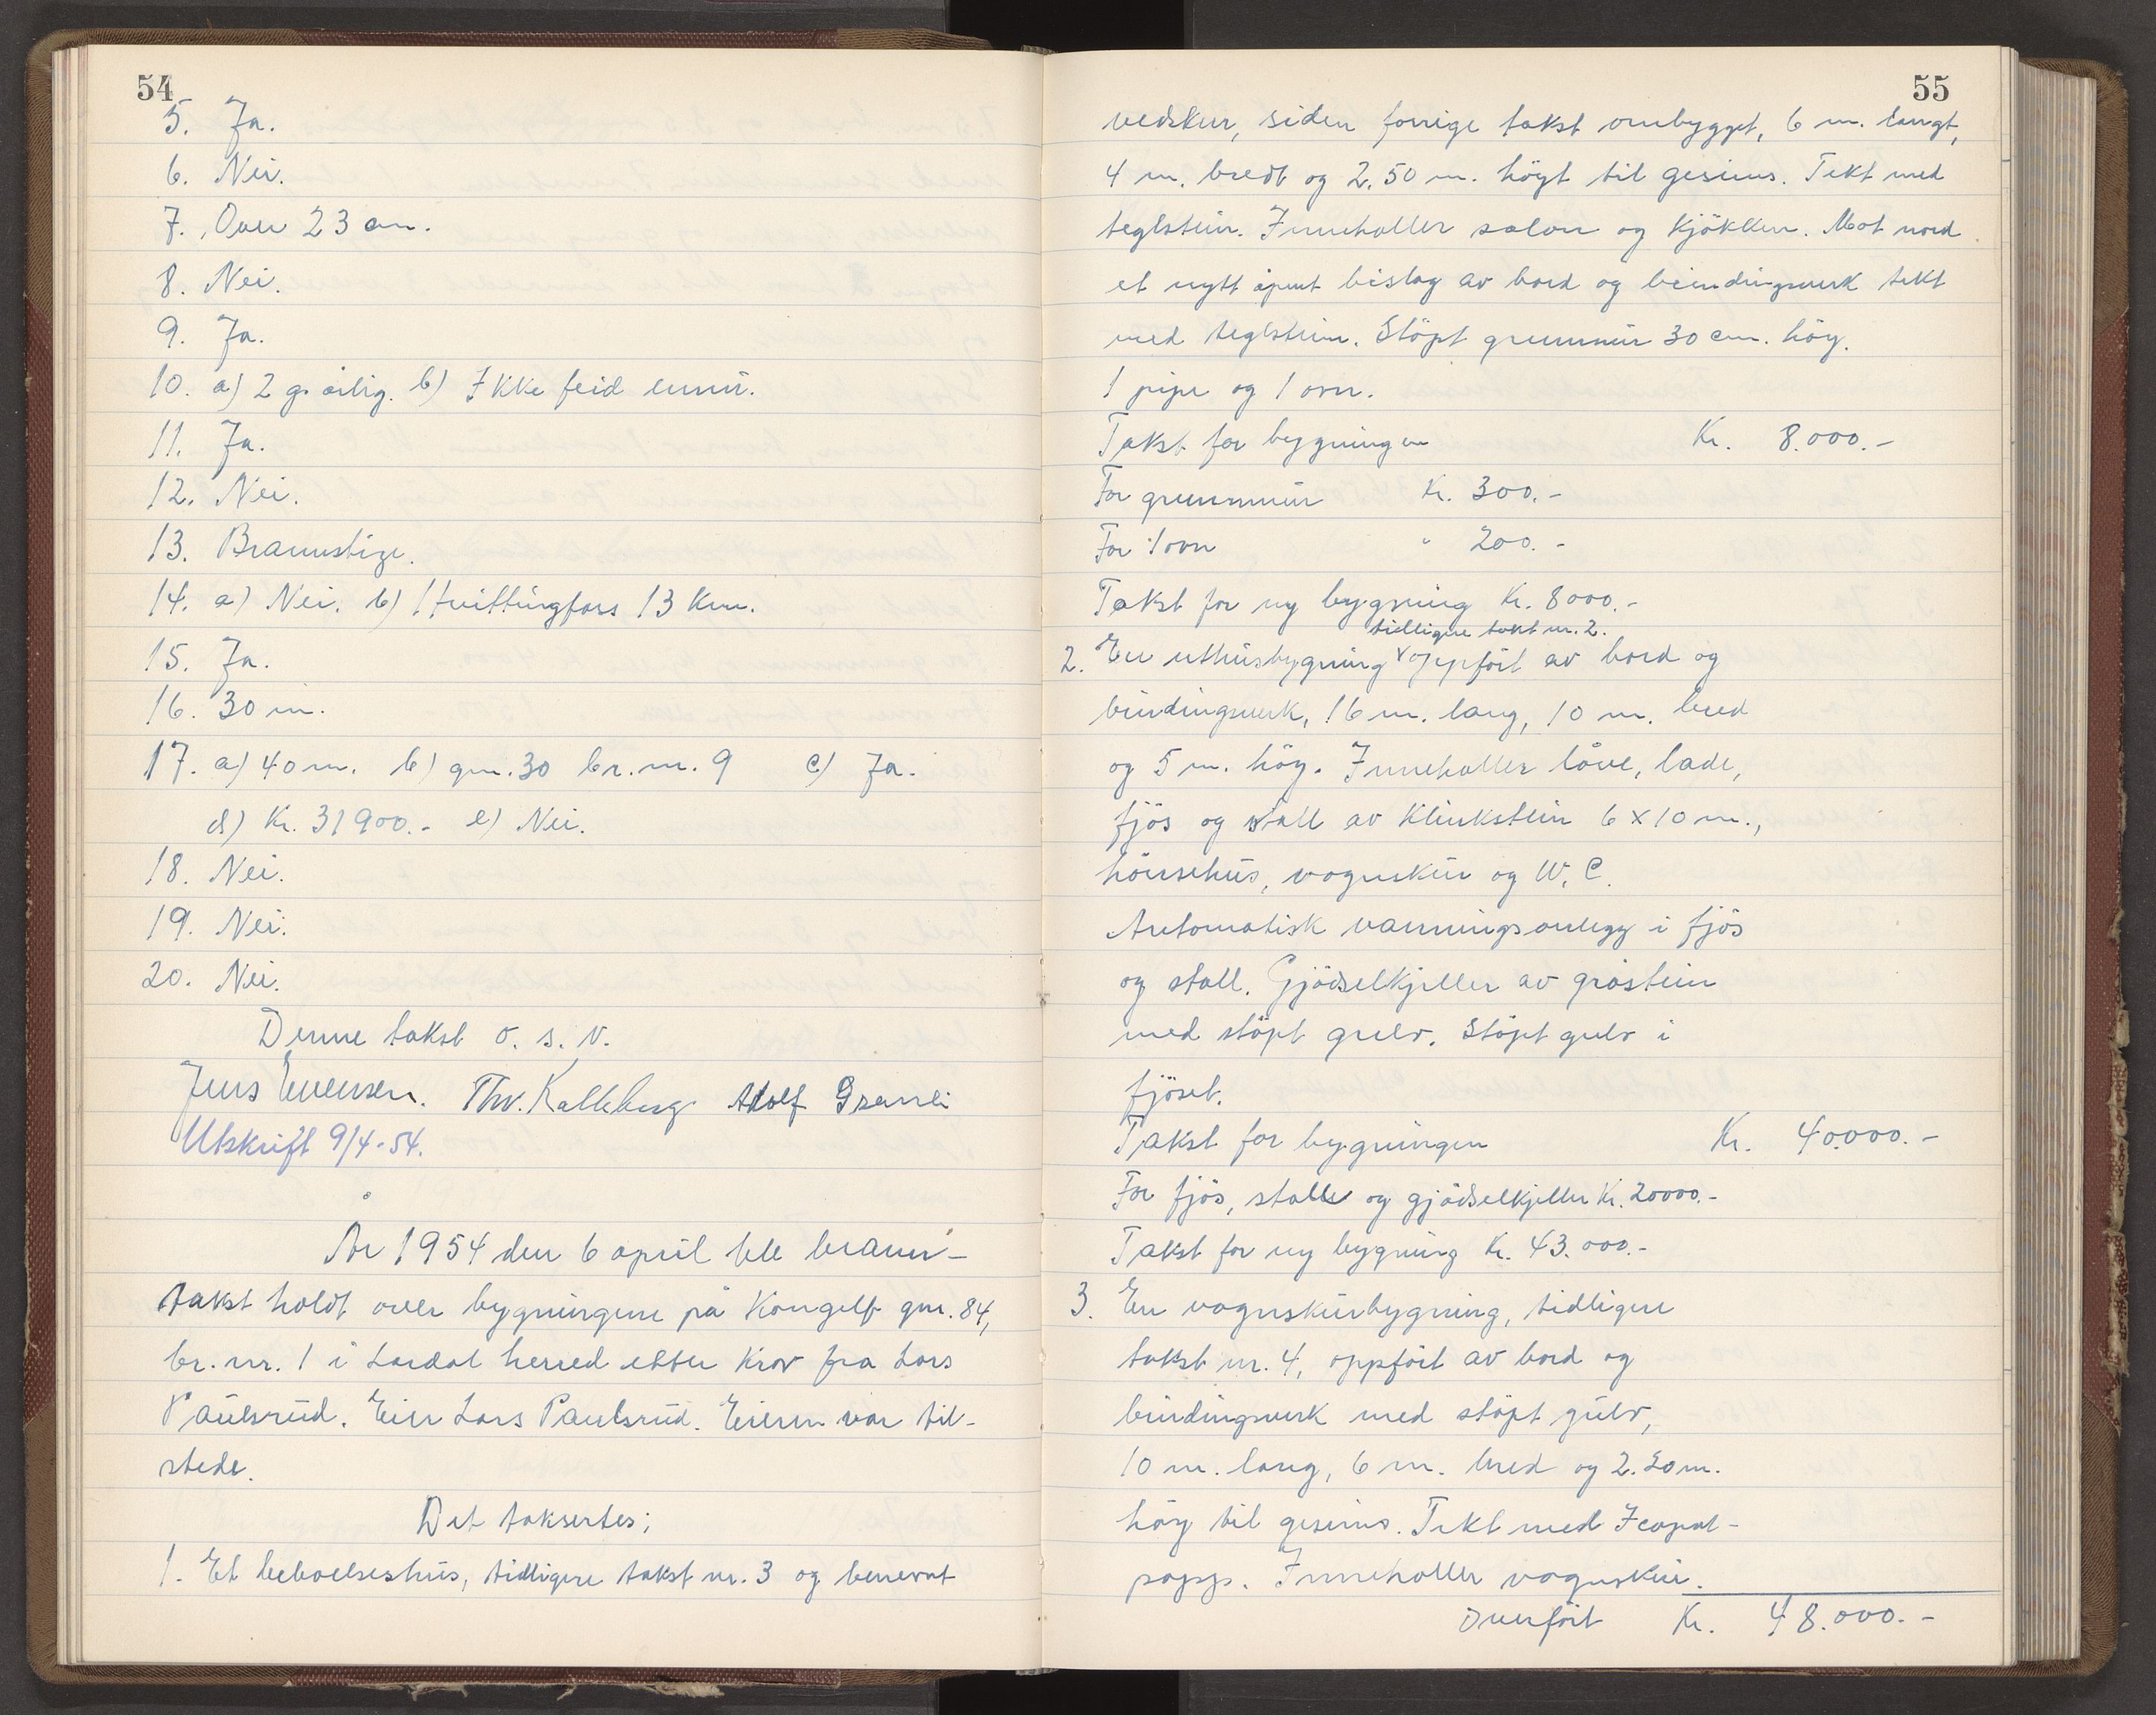 54
5. Ja.
6. Nei.
7. Over 23 cm.
8. Nei.
9. Ja.
10. a) 2 g. årlig. b) Ikke feid ennu.
11. Ja.
12. Nei.
13. Brannstige.
14. a) Nei. b) Hvittingfoss 13 km.
15. Ja.
16. 30 m.
17. a) 40 m. b) gnr. 30 br. nr. 9 c) Ja.
d) Kr. 31900.- e) Nei.
18. Nei.
19. Nei.
20. Nei.
Denne takst o. s. v.
Jens Evensen. Thv. Kalleberg Adolf Granli
Utskrift 9/4-54.
År 1954 den 6 april ble brann-
takst holdt over bygningene på Kongelf gnr. 84,
br. nr. 1 i Lardal herred etter krav fra Lars
Paulsrud. Eier Lars Paulsrud. Eieren var til-
stede.
Det taksertes;
1. Et beboelseshus, tidligere takst nr. 3 og benevnt
55
vedskur, siden forrige takst ombygget, 6 m. langt,
4 m. bredt og 2.50 m. högt til gesims. Tekt med
teglstein. Inneholler salon og kjökken. Mot nord
et nytt åpent bislag av bord og beindingsverk tekt
med teglstein. Stöpt grunnmur 30 cm. höy.
1 pipe og 1 ovn.
Takst for bygningen Kr. 8.000.-
For grunnmur Kr. 300.-
For 1 ovn " 200.-
Takst for ny bygning Kr. 8000.-
tidligere takst nr. 2.
2. En uthusbygning v oppfört av bord og
bindingsverk, 16 m. lang, 10 m. bred
og 5 m. höy. Inneholler låve, lade,
fjös og stall av klinkstein 6 x 10 m.,
hönsehus, vognskur og W. C.
Automatisk vanningsanlegg i fjös
og stall. Gjödselkjeller av gråstein
med stöpt gulv. Stöpt gulv i
fjöset.
Takst for bygningen Kr. 40.000.-
For fjös, stall og gjödselkjeller Kr. 20000.-
Takst for ny bygning Kr. 43.000.-
3. En vognskurbygning, tidligere
takst nr. 4, oppfört av bord og
bindingsverk med stöpt gulv,
10 m. lang, 6 m. bred og 2.20 m.
höy til gesims. Tekt med Icopal-
papp. Inneholler vognskur.
Overfört Kr. 48.000.-